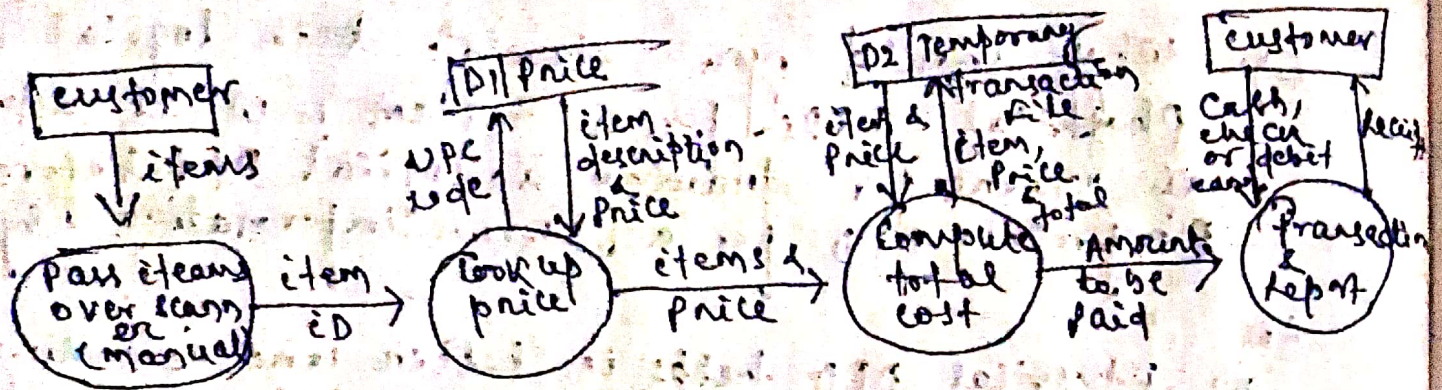 customer
items
Pass iteams
over scann
er
(manual)
item
iD
D1 Price
UPC
code
item
description
&
Price
Look up
price
items &
Price
D2 Temporary
transaction
file
item &
Price
item,
Price
& total
Compute
total
cost
Amount
to be
Paid
customer
Cash,
check
or debit
card
Transaction
&
report